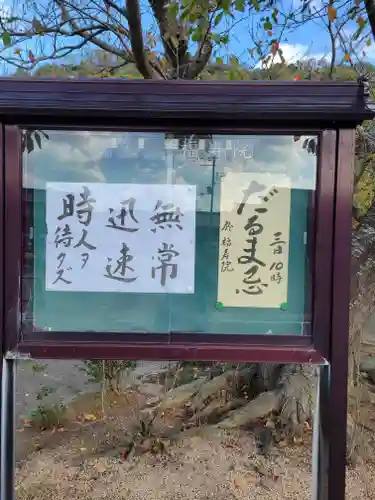 福寿院
無常
迅速
時人ヲ待タズ
三日10時
だるま忌
於福寿院